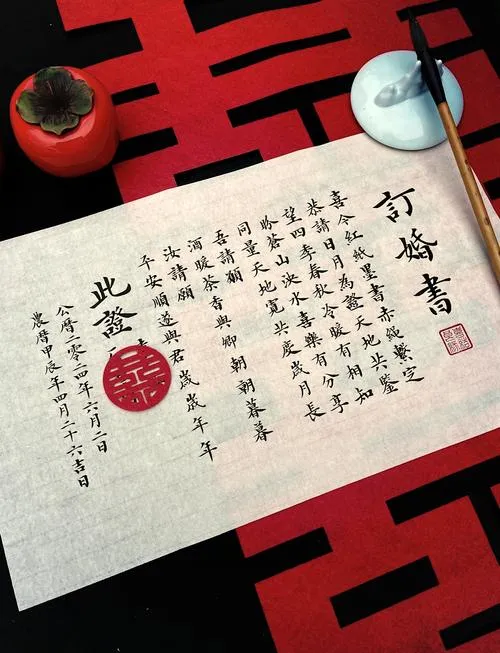 訂婚書
喜今紅紙墨書赤繩繫定
恭請日月為證天地共鑒
望四季春秋冷暖有相知
盼蒼山泱水喜樂有分享
同量天地寬共慶歲月長
吾請願
酒暖茶香與卿朝朝暮暮
汝請願
平安順遂與君歲歲年年
此證
囍
公曆二零二四年六月二日
農曆甲辰年四月二十六吉日